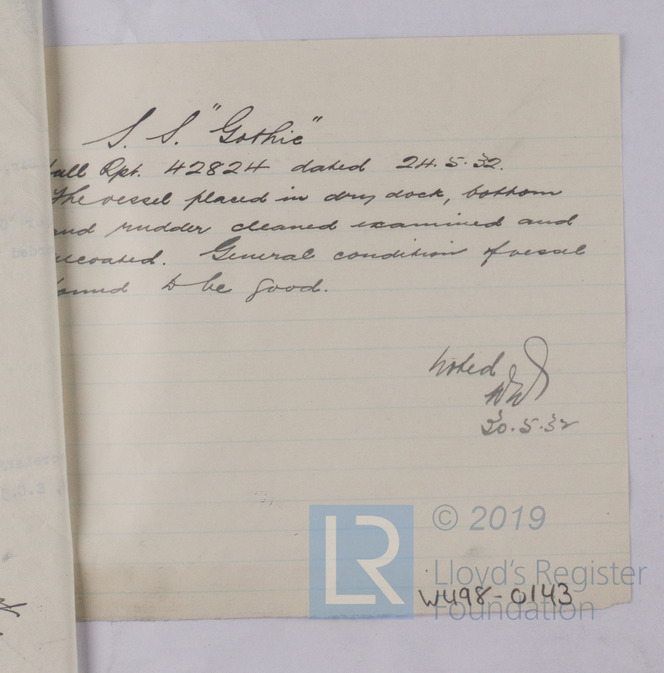 S. S. "Gothic"
ull Rpt. 42824 dated 24.5.32.
The vessel placed in dry dock, bottom
and rudder cleaned examined and
ecoated. General condition of vessel
ound to be good.
Noted
30.5.32
LR © 2019
Lloyd's Register
Foundation
W498-0143